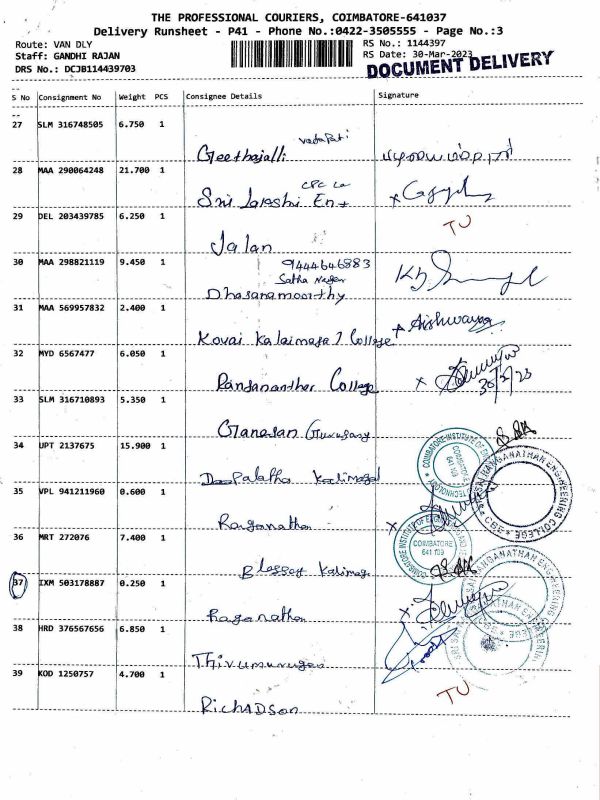 THE PROFESSIONAL COURIERS, COIMBATORE-641037
Delivery Runsheet - P41 - Phone No.:0422-3505555 - Page No.:3
Route: VAN DLY
RS No.: 1144397
Staff: GANDHI RAJAN
RS Date: 30-Mar-2023
DRS No.: DCJB114439703
DOCUMENT DELIVERY
S No Consignment No Weight PCS Consignee Details Signature
27 SLM 316748505 6.750 1
Geethajalli
28 MAA 290064248 21.700 1
Sri
29 DEL 203439785 6.250 1
TU
Jalan
30 MAA 298821119 9.450 1
9444646883
Dhasaramoorthy
31 MAA 569957832 2.400 1
Aishwarya
Kovai Kalaimagal College
32 MYD 6567477 6.050 1
30/3/23
College
33 SLM 316710893 5.350 1
Ganesan
34 UPT 2137675 15.900 1
COIMBATORE INSTITUTE OF
COIMBATORE 641 109
RANGANATHAN ENGINEERING COLLEGE * CBE *
35 VPL 941211960 0.600 1
Ranganathan
36 MRT 272076 7.400 1
COIMBATORE
641 109
Blessy
37 IXM 503178887 0.250 1
Raganathan
38 HRD 376567656 6.850 1
Thirumurugan
39 KOD 1250757 4.700 1
TU
RichaDson